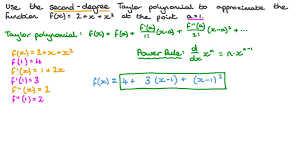 Use the second-degree Taylor polynomial to approximate the
function f(x) = 2 + x + x² at the point a=1.
Taylor polynomial: f(x) = f(a) + f'(a)/1! (x-a) + f''(a)/2! (x-a)² + ...
f(x) = 2 + x + x²
f(1) = 4
f'(x) = 1 + 2x
f'(1) = 3
f''(x) = 2
f''(1) = 2
Power Rule: d/dx xⁿ = n·xⁿ⁻¹
f(x) ≈ 4 + 3(x-1) + (x-1)²